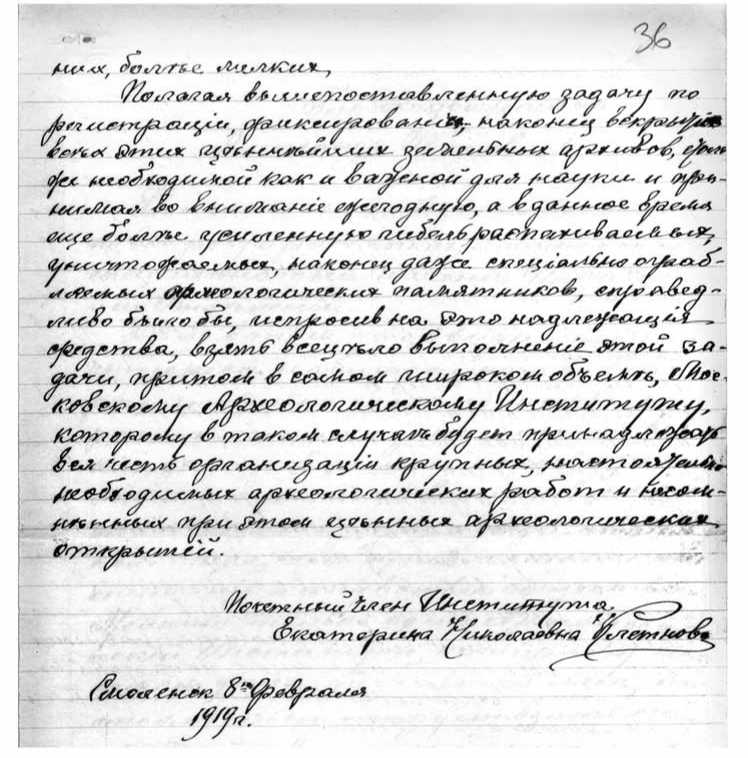 36
них, болѣе мелких,
Полагая вышепоставленную задачу по
регистраціи, фиксированію, наконец вскрытію
всѣх этих цѣннѣйших земельных архивов,
же необходимой как и важной для науки и при-
нимая во вниманіе ежегодную, а в данное время
еще болѣе усиленную гибель распахиваемых,
уничтожаемых, наконец даже спеціально ограб-
ляемых археологических памятников, справед-
ливо было бы, испросив на это надлежащія
средства, взять всецѣло выполненіе этой за-
дачи, притом в самом широком объемѣ, Мос-
ковскому Археологическому Институту,
которому в таком случаѣ будет принадлежать
вся честь организаціи крупных, настоятельно
необходимых археологических работ и несом-
нѣнных при этом цѣнных археологических
открытій.
Почетный Член Института
Екатерина Николаевна Клетнова
Смоленск 8го Февраля
1919 г.